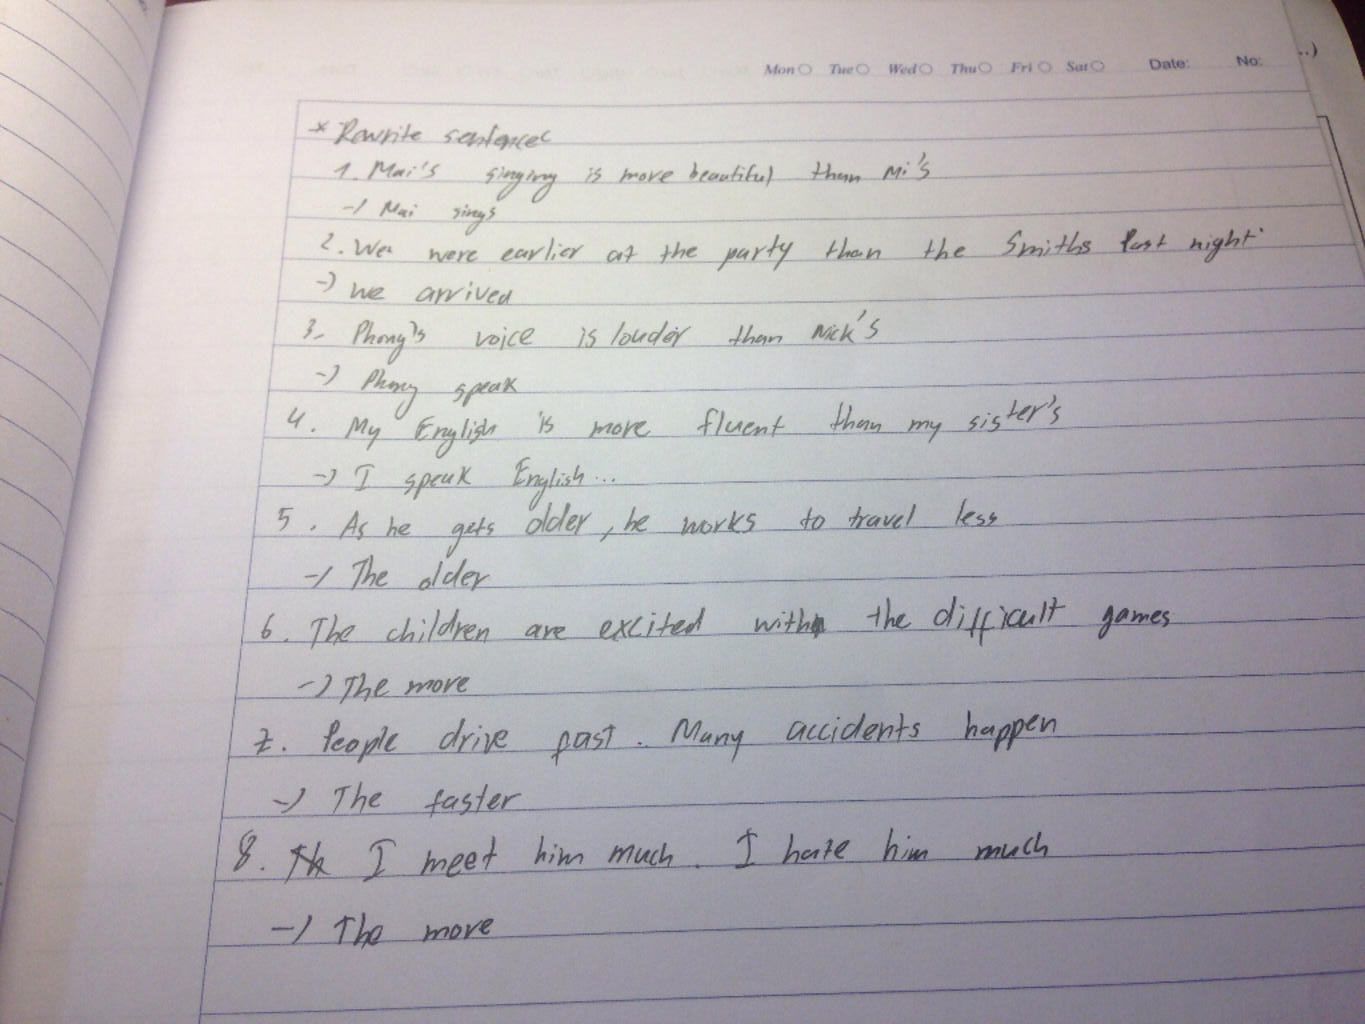 Mon Tue Wed Thu Fri Sat Date: No:
..)
* Rewrite sentence
1. Mai's singing is more beautiful than Mi's
-) Mai sings
2. We were earlier at the party than the Smiths last night.
-) We arrived
3. Phong's voice is louder than Nick's
-) Phong speak
4. My English is more fluent than my sister's
-) I speak English...
5. As he gets older, he works to travel less
-) The older
6. The children are excited with the difficult games
-) The more
7. People drive fast. Many accidents happen
-) The faster
8. I meet him much. I hate him much
-) The more